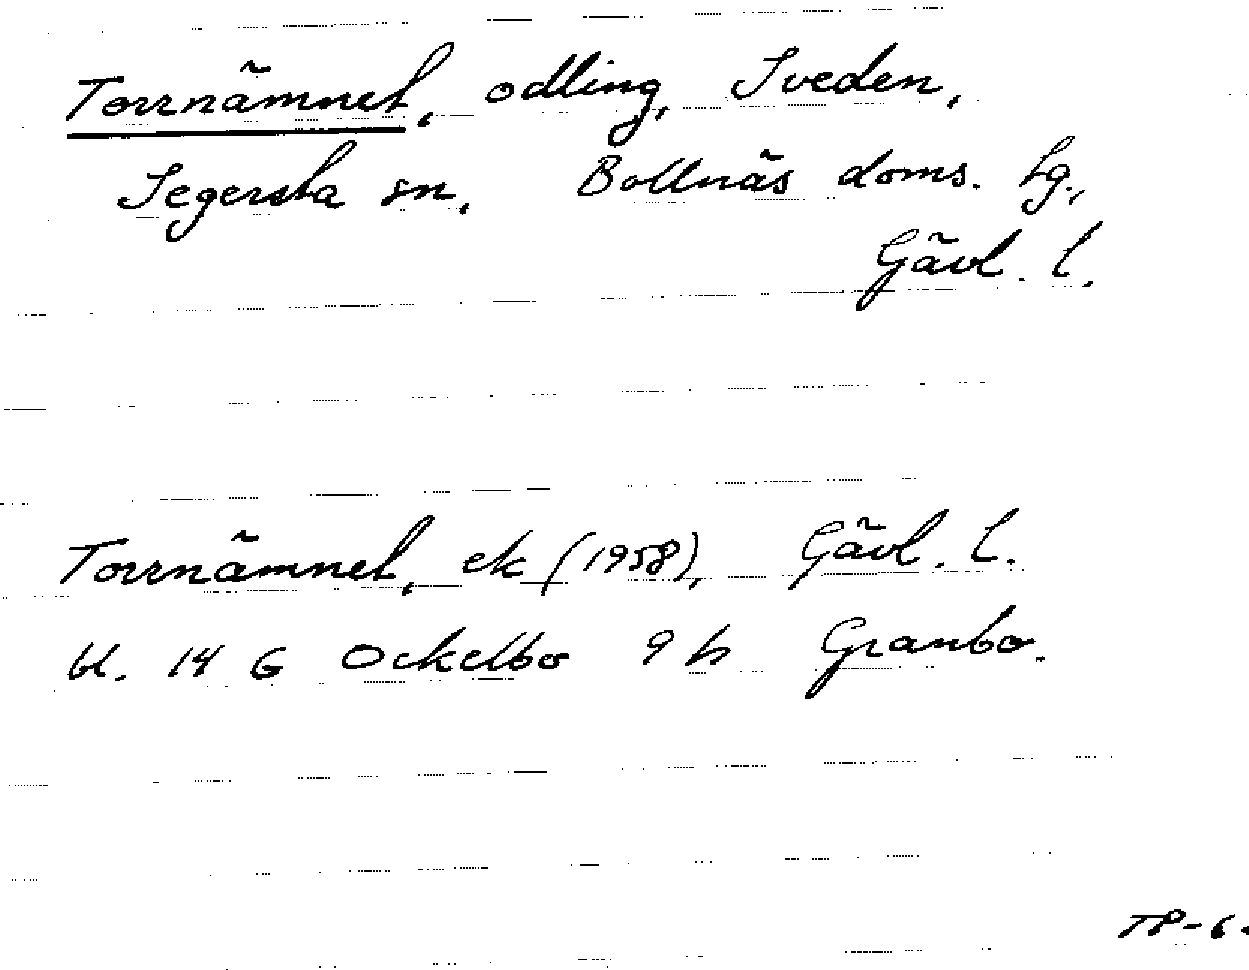 Torrnämnet, odling, Sveden,
Segersta sn, Bollnäs doms. tg.,
Gävl. l.
Torrnämnet, ek (1958), Gävl. l.
bl. 14 G Ockelbo 9 h Granbo.
TP-6.